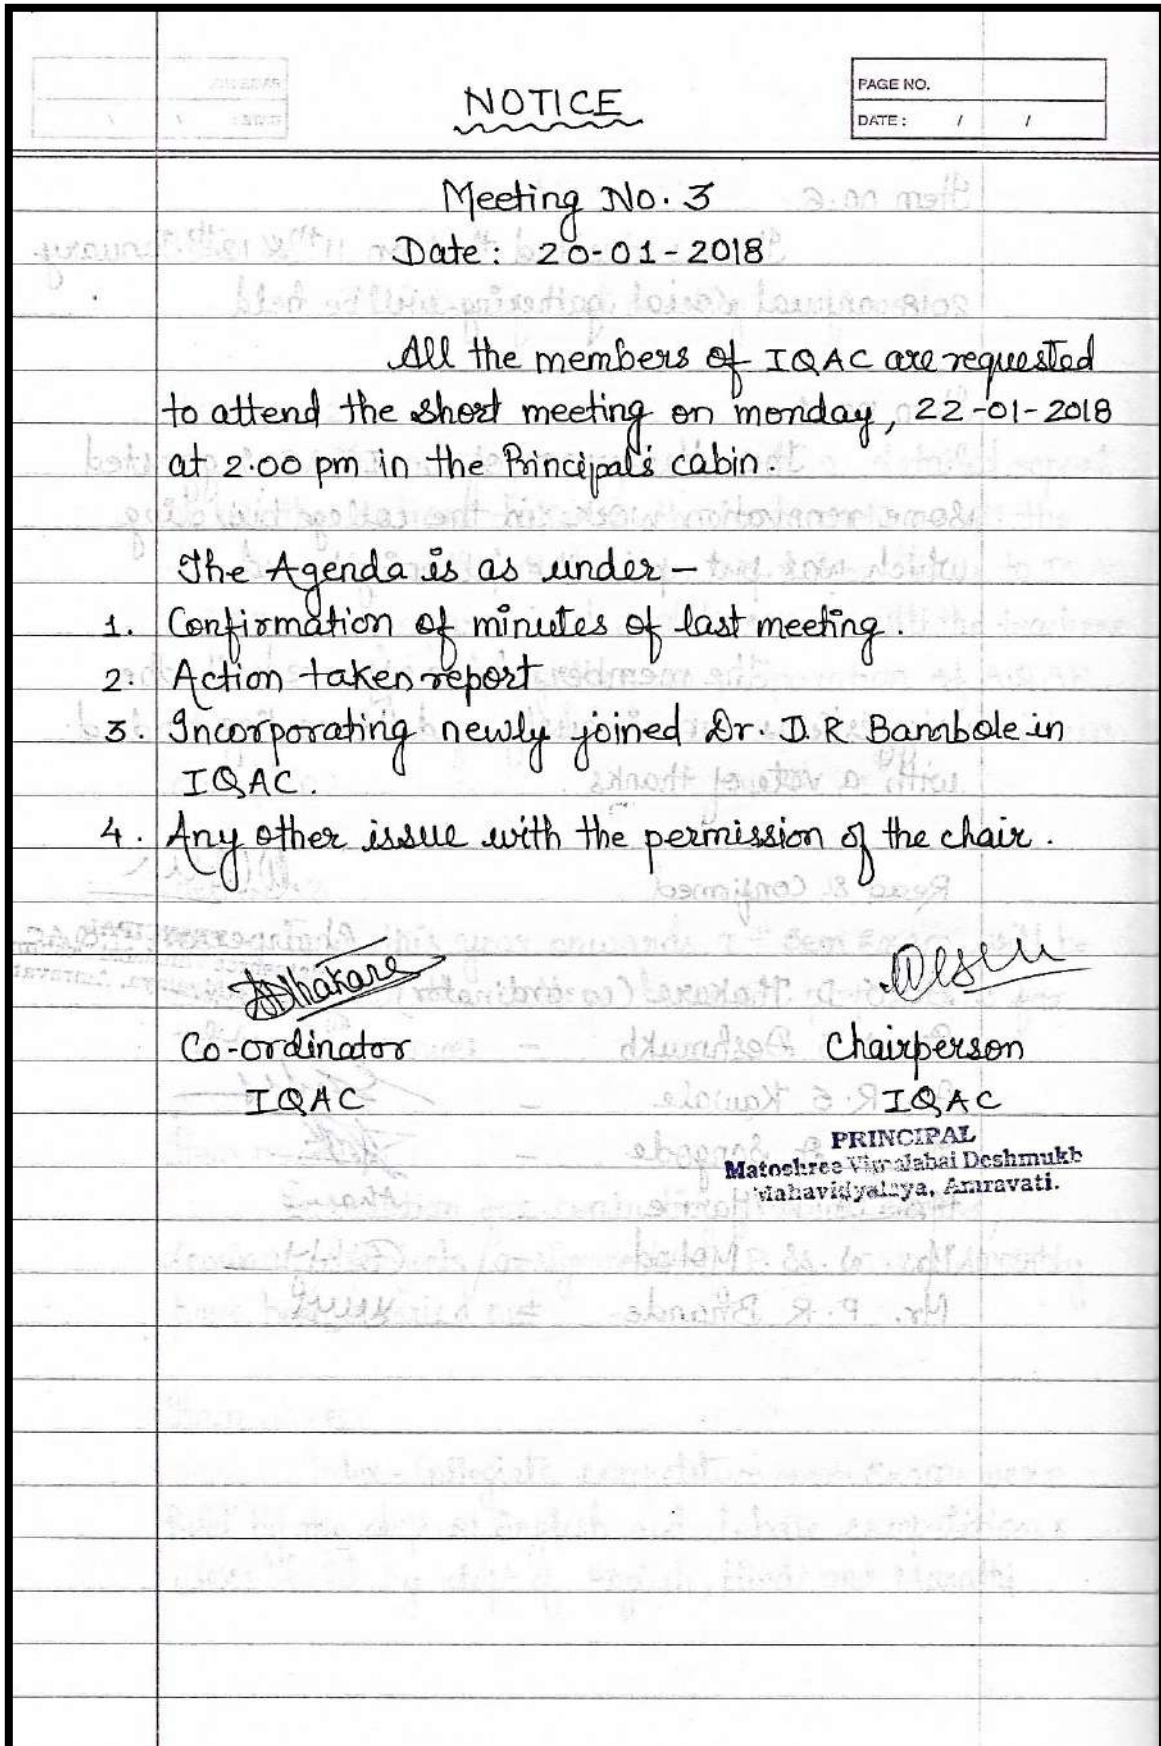 NOTICE
PAGE NO.
DATE : / /
Meeting No. 3
Date : 20-01-2018
All the members of IQAC are requested
to attend the short meeting on monday, 22-01-2018
at 2.00 pm in the Principal's cabin.
The Agenda is as under –
1. Confirmation of minutes of last meeting.
2. Action taken report
3. Incorporating newly joined Dr. D. R Bambole in
IQAC.
4. Any other issue with the permission of the chair.
Co-ordinator
IQAC
Chairperson
IQAC
PRINCIPAL
Matoshree Vimalabai Deshmukh
Mahavidyalaya, Amravati.